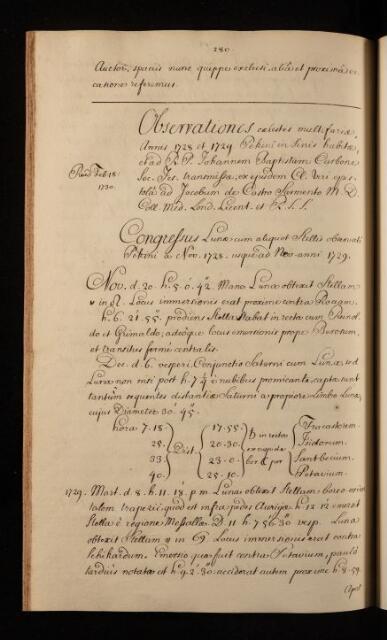 180
Auctor, spatiis nunc quippe exclusi aliâ et proximâ
catione referemus.
Observationes celestes multifariæ,
Annis 1728 et 1729 Pekini in Sinis habitæ,
et ad R. P. Johannem Baptistam Carbone
Soc. Jes. transmissæ; ex ejusdem Cl. Viri epis-
tolâ ad Jacobum de Castro Sarmento M. D.
Coll. Med. Lond. Licent. et R. S. S.
Read Feb. 18
1730.
Congressus Lunæ cum aliquot Stellis observati
Pekini a Nov. 1728. usque ad Nov. anni 1729.
Nov. d. 20. h. 5. 0. 42. Mane Luna obtexit Stellam
in ♌. Locus immersionis erat proxime contra
h. 6. 21. 55. prodiens Stella stabat in recta cum
do et Grimaldo; adeóque locus emersionis prope
et transitus ferme centralis.
Dec. d. 6. vesperi. Conjunctio Saturni cum Luna, sed
Luna non nisi post h. 7 1/4 è nubibus promicante, captæ sunt
tantùm sequentes distantiæ Saturni a propiore Limbo Lunæ,
cujus Diameter 30. 45.
hora 7. 18. Dist. 17. 55. ♄ in rectas Fracastorem.
28. 20. 30.
33. 23. 0. ber & per Santbecium.
40. 25. 10. Petavium.
1729. Mart. d. 8. h. 11. 18. p. m. Luna obtexit Stellam boreo-orien
talem trapezii, quod est infra pedes Aurigæ h. 12. 12. emersit
Stella è regione Messallæ. D. 11. h. 7. 56. 30. vesp. Luna
obtexit Stellam in ♋. Locus immersionis erat contra
Schikardum. Emersio quæ fuit contra Petavium, paulò
tardiùs notata est h. 9. 2. 30. acciderat autem proxime h. 8. 59.
Apri